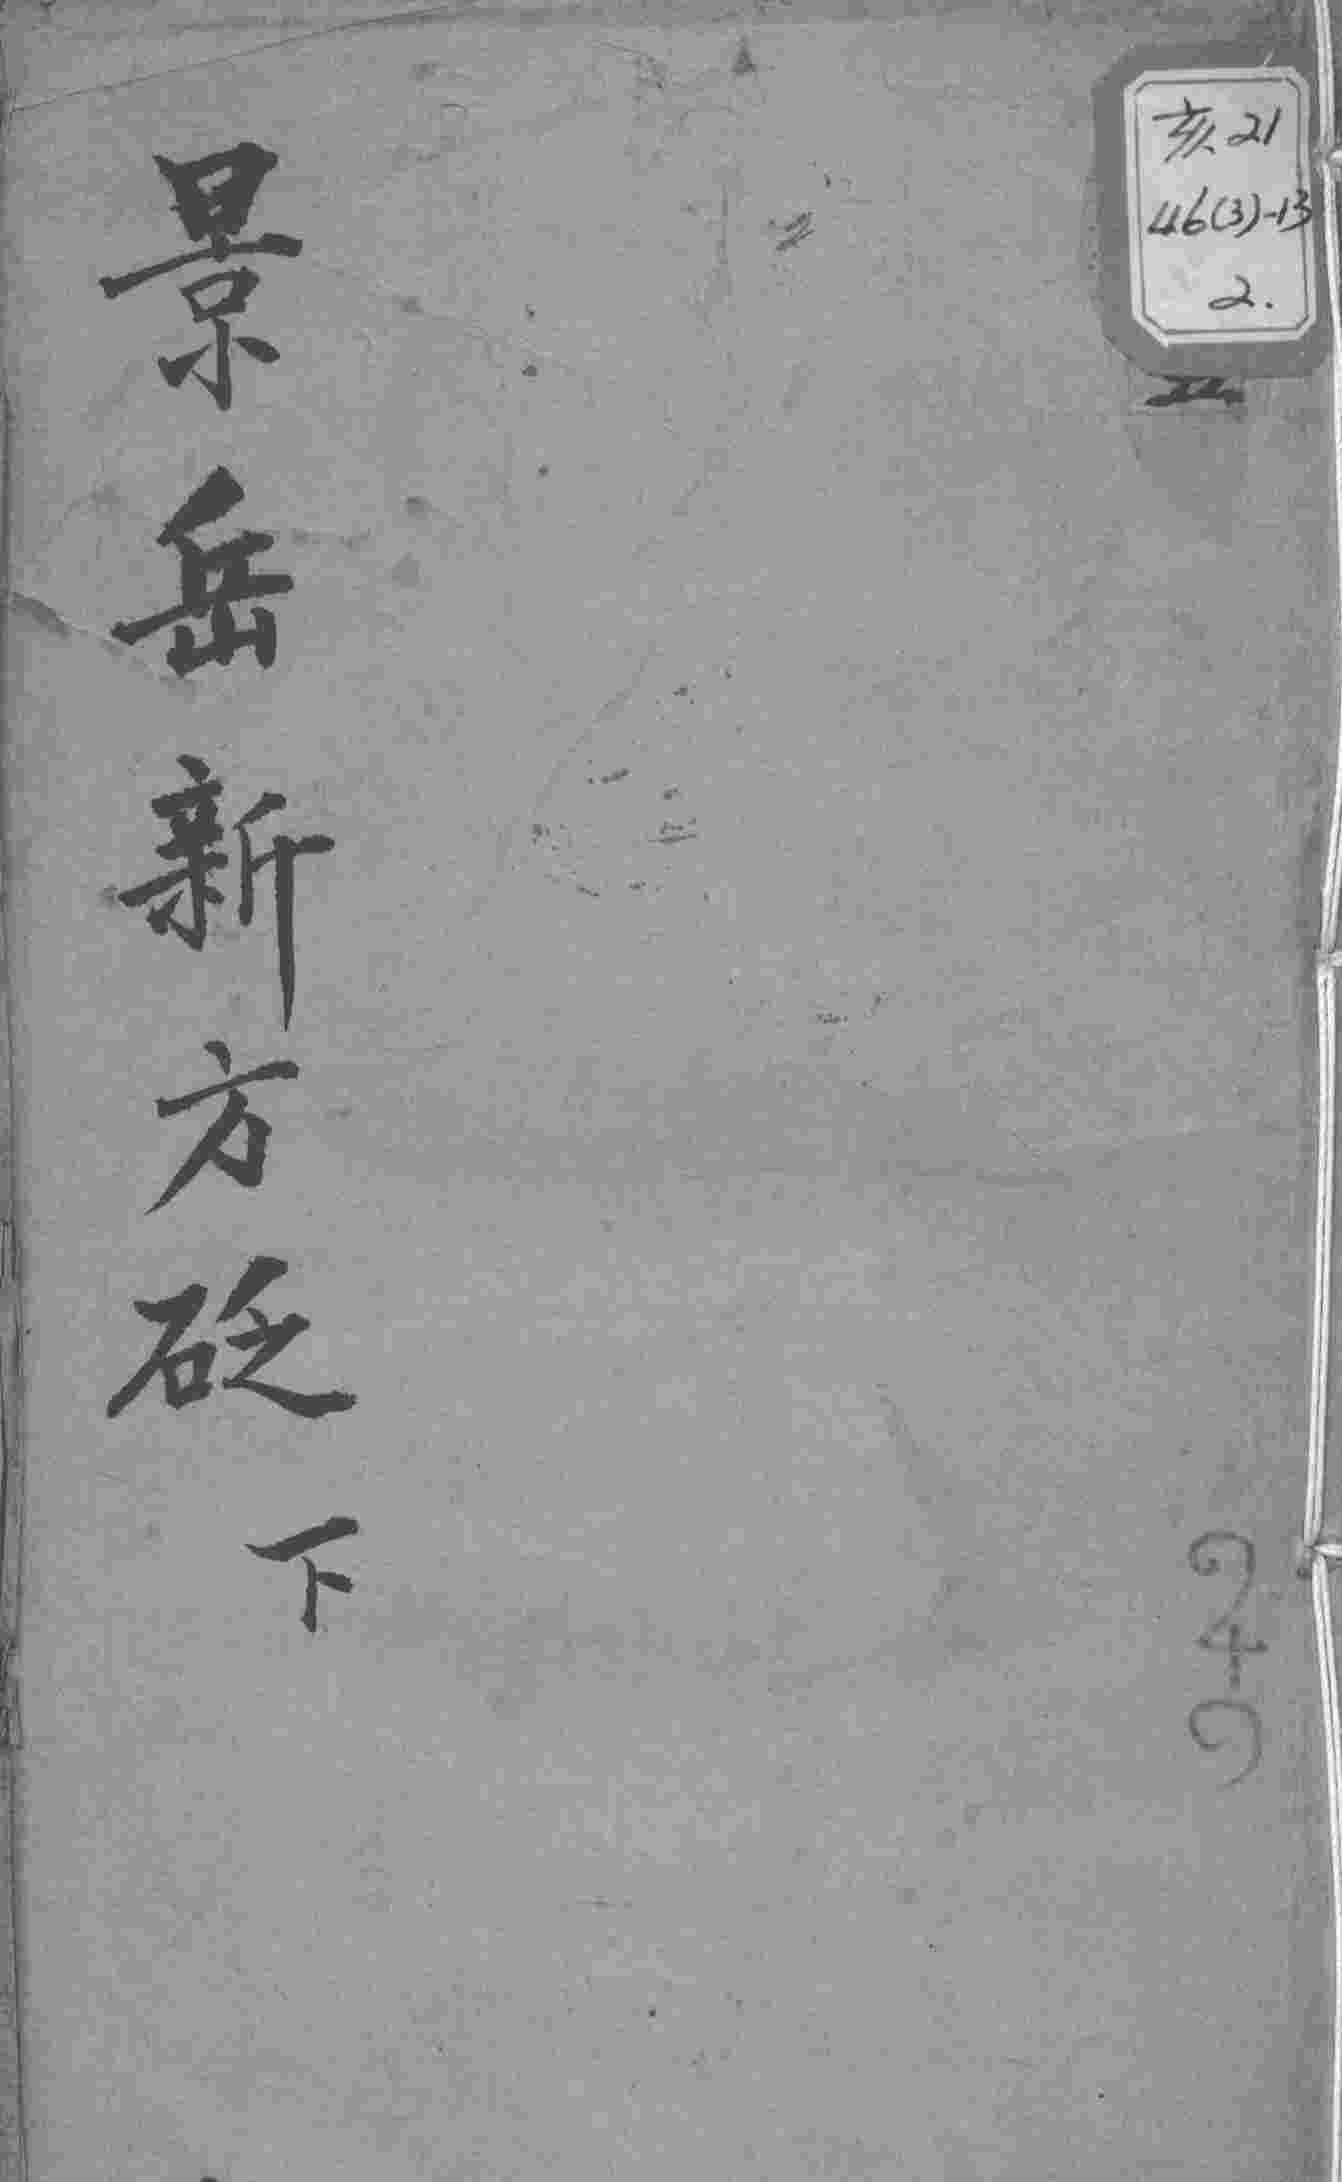 亥21
46(3)-13
2.
景岳新方砭
下